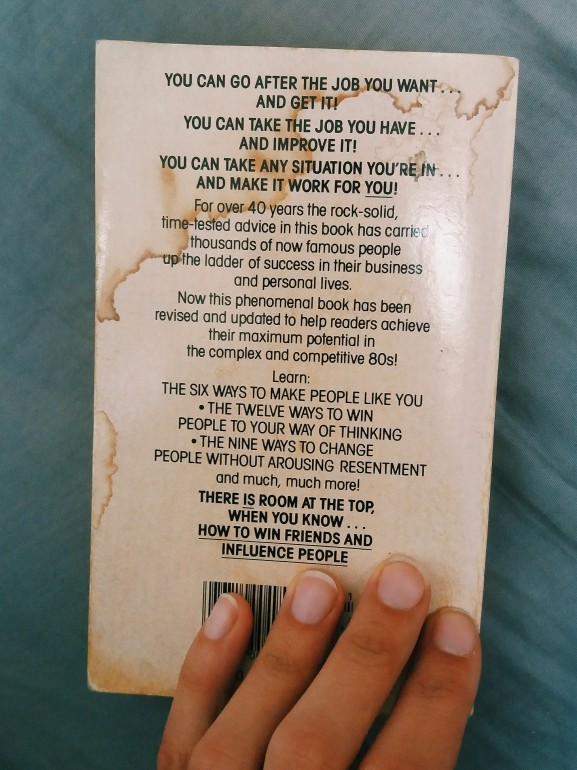 YOU CAN GO AFTER THE JOB YOU WANT...
AND GET IT!
YOU CAN TAKE THE JOB YOU HAVE...
AND IMPROVE IT!
YOU CAN TAKE ANY SITUATION YOU'RE IN...
AND MAKE IT WORK FOR YOU!
For over 40 years the rock-solid,
time-tested advice in this book has carried
thousands of now famous people
up the ladder of success in their business
and personal lives.
Now this phenomenal book has been
revised and updated to help readers achieve
their maximum potential in
the complex and competitive 80s!
Learn:
THE SIX WAYS TO MAKE PEOPLE LIKE YOU
• THE TWELVE WAYS TO WIN
PEOPLE TO YOUR WAY OF THINKING
• THE NINE WAYS TO CHANGE
PEOPLE WITHOUT AROUSING RESENTMENT
and much, much more!
THERE IS ROOM AT THE TOP,
WHEN YOU KNOW...
HOW TO WIN FRIENDS AND
INFLUENCE PEOPLE